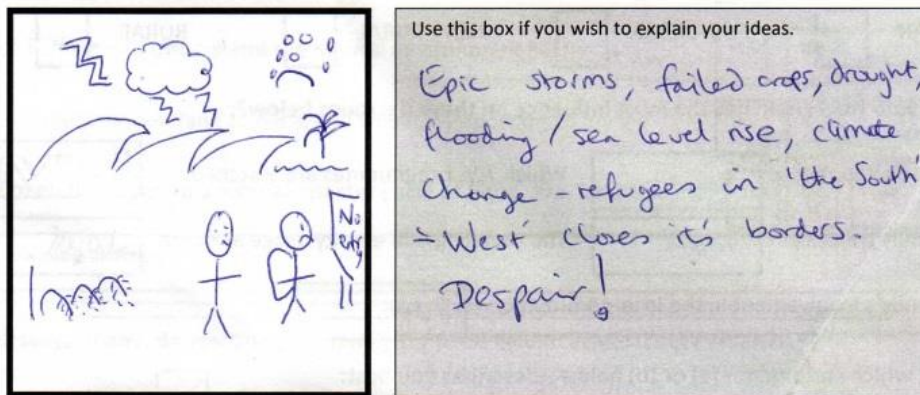 No
entry
Use this box if you wish to explain your ideas.
Epic storms, failed crops, drought,
flooding / sea level rise, climate
change - refugees in 'the South'
= 'West' closes it's borders.
Despair!